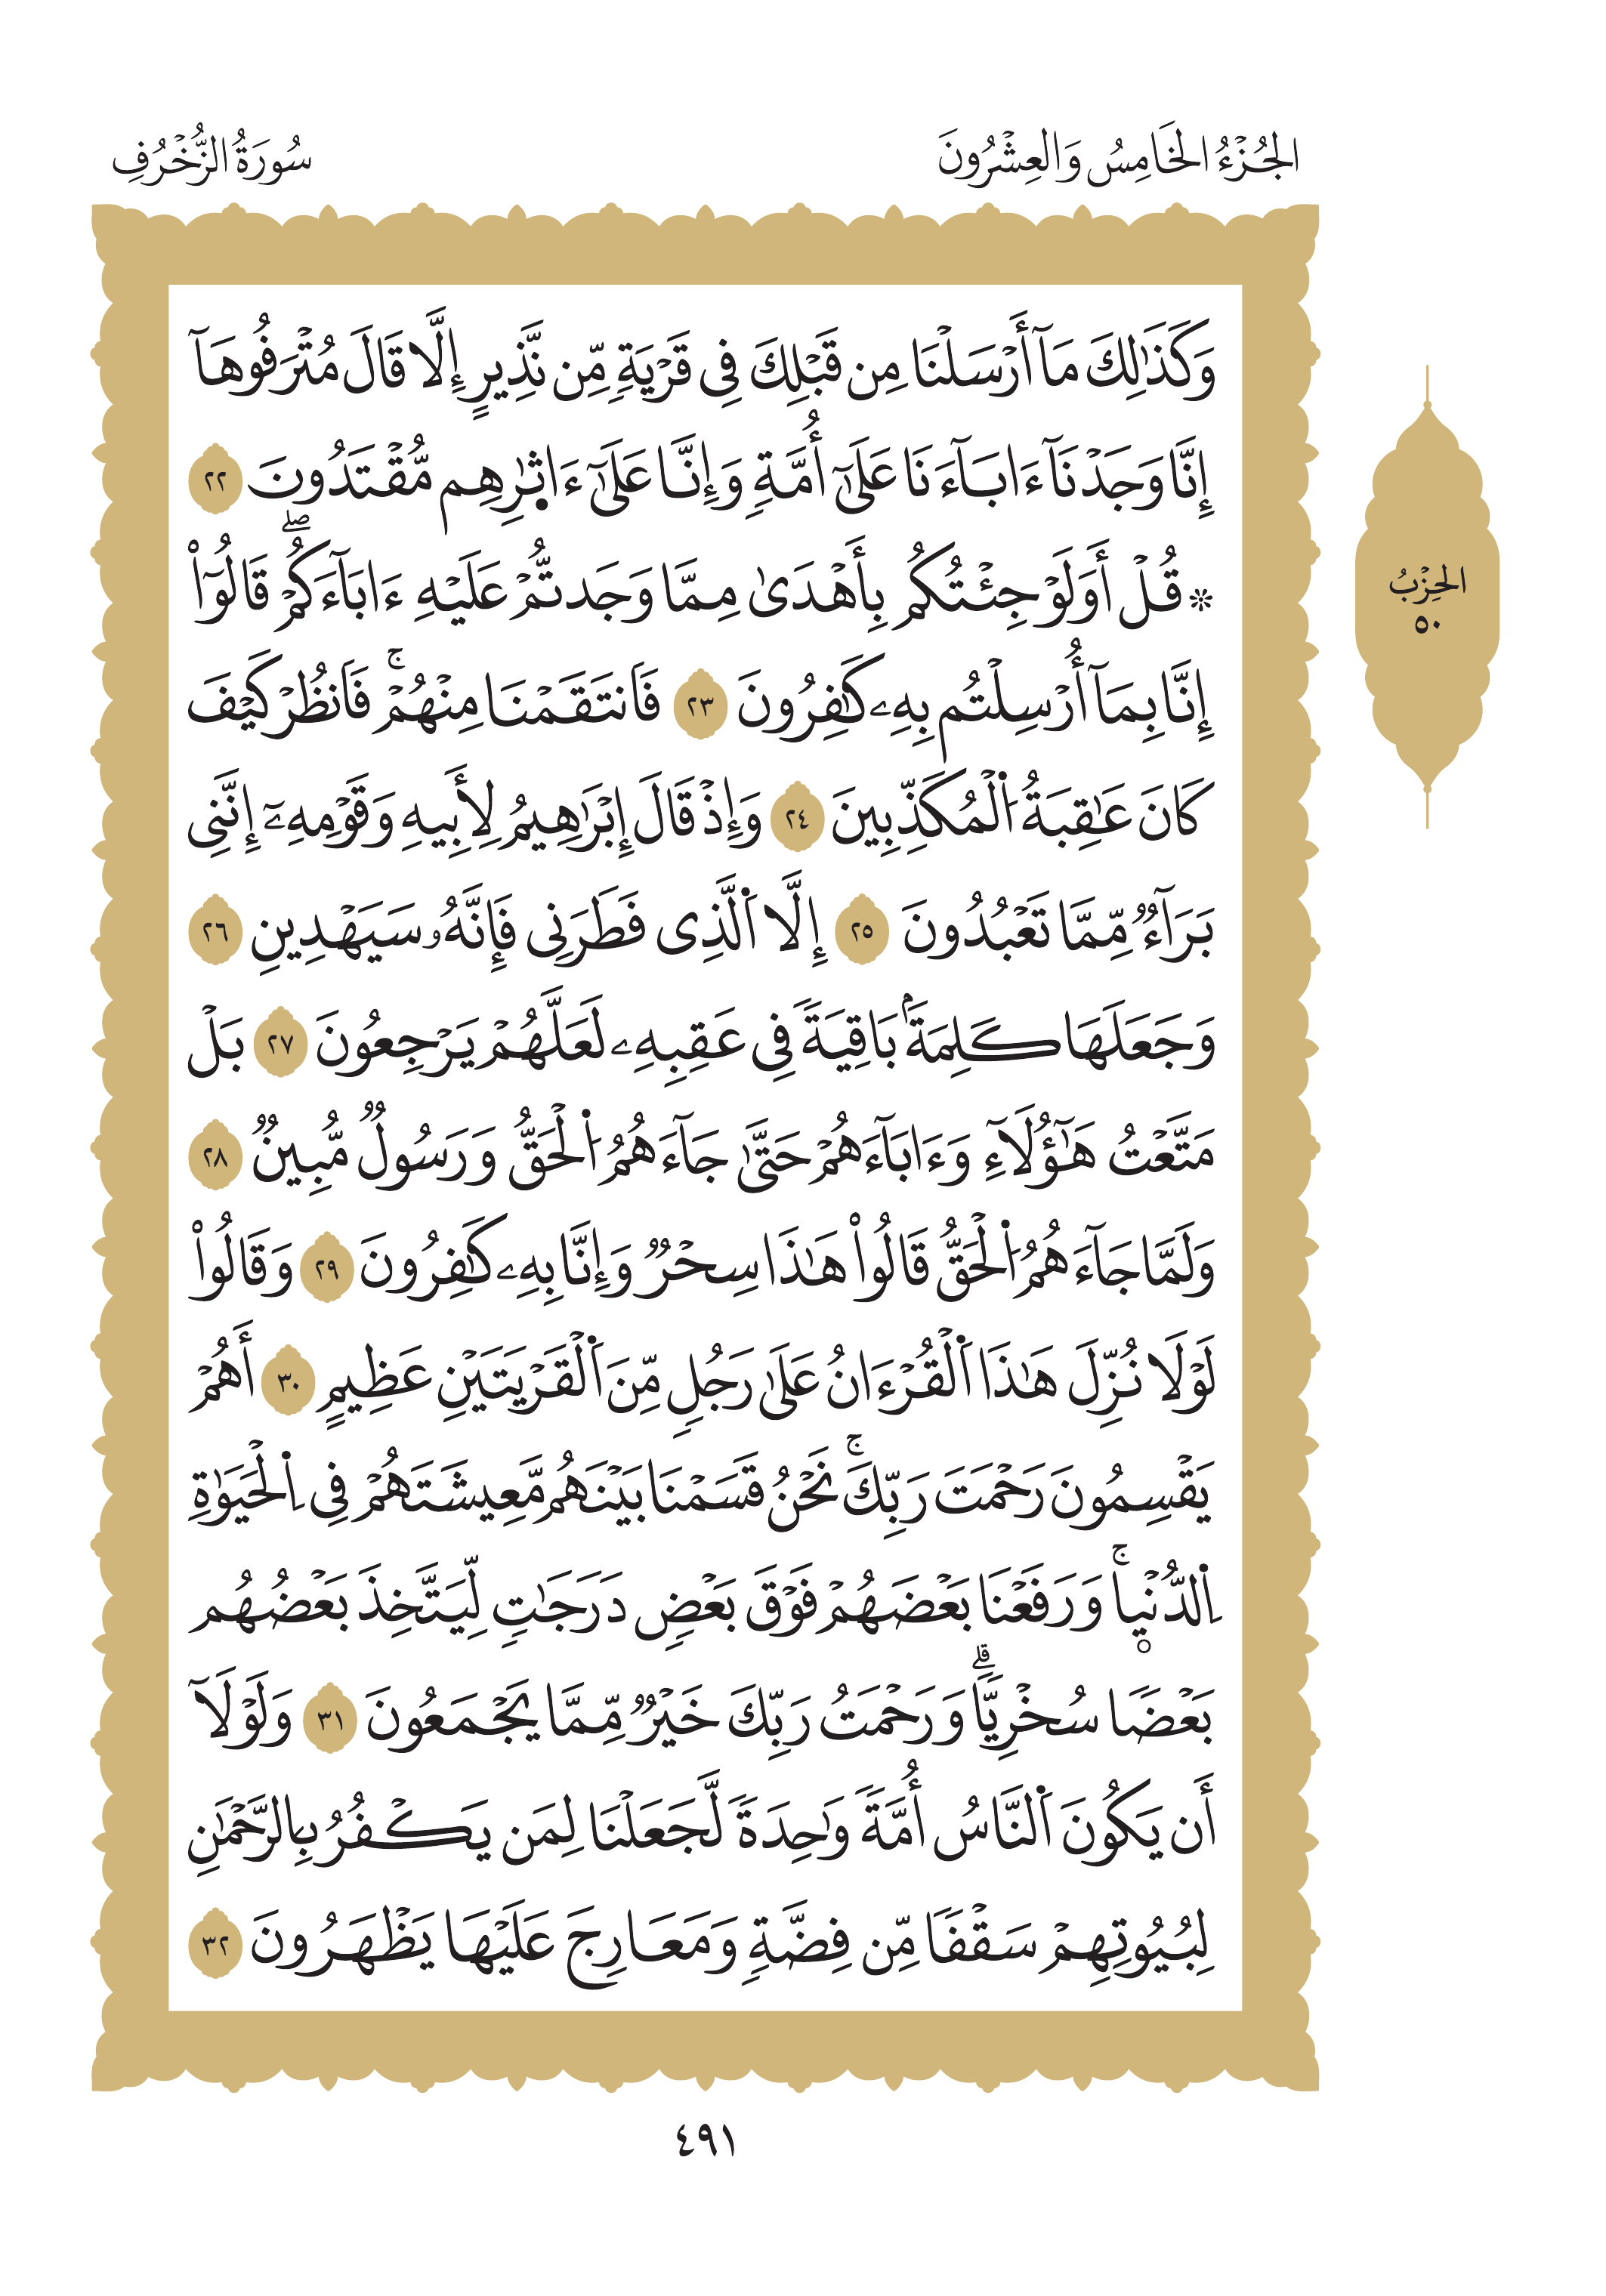 الجُزْءُ الخَامِسُ وَالعِشْرُونَ
سُورَةُ الزُّخْرُفِ
وَكَذَٰلِكَ مَآ أَرْسَلْنَا مِن قَبْلِكَ فِى قَرْيَةٍ مِّن نَّذِيرٍ إِلَّا قَالَ مُتْرَفُوهَآ
إِنَّا وَجَدْنَآ ءَابَآءَنَا عَلَىٰٓ أُمَّةٍ وَإِنَّا عَلَىٰٓ ءَاثٰ۪رِهِم مُّقْتَدُونَ ٢٢
* قُلْ أَوَلَوْ جِئْتُكُم بِأَهْدَىٰ مِمَّا وَجَدتُّمْ عَلَيْهِ ءَابَآءَكُمْۖ قَالُوٓا۟
إِنَّا بِمَآ أُرْسِلْتُم بِهِۦ كَٰفِرُونَ ٢٣ فَٱنتَقَمْنَا مِنْهُمْۚ فَٱنظُرْ كَيْفَ
كَانَ عَٰقِبَةُ ٱلْمُكَذِّبِينَ ٢٤ وَإِذْ قَالَ إِبْرَٰهِيمُ لِأَبِيهِ وَقَوْمِهِۦٓ إِنَّنِى
بَرَآءٌ مِّمَّا تَعْبُدُونَ ٢٥ إِلَّا ٱلَّذِى فَطَرَنِى فَإِنَّهُۥ سَيَهْدِينِ ٢٦
وَجَعَلَهَا كَلِمَةَۢ بَاقِيَةً فِى عَقِبِهِۦ لَعَلَّهُمْ يَرْجِعُونَ ٢٧ بَلْ
مَتَّعْتُ هَٰٓؤُلَآءِ وَءَابَآءَهُمْ حَتَّىٰ جَآءَهُمُ ٱلْحَقُّ وَرَسُولٌ مُّبِينٌ ٢٨
وَلَمَّا جَآءَهُمُ ٱلْحَقُّ قَالُوا۟ هَٰذَا سِحْرٌ وَإِنَّا بِهِۦ كَٰفِرُونَ ٢٩ وَقَالُوا۟
لَوْلَا نُزِّلَ هَٰذَا ٱلْقُرْءَانُ عَلَىٰ رَجُلٍ مِّنَ ٱلْقَرْيَتَيْنِ عَظِيمٍ ٣٠ أَهُمْ
يَقْسِمُونَ رَحْمَتَ رَبِّكَۚ نَحْنُ قَسَمْنَا بَيْنَهُم مَّعِيشَتَهُمْ فِى ٱلْحَيَوٰةِ
ٱلدُّنْيٜاۚ وَرَفَعْنَا بَعْضَهُمْ فَوْقَ بَعْضٍ دَرَجَٰتٍ لِّيَتَّخِذَ بَعْضُهُم
بَعْضًا سُخْرِيًّاۗ وَرَحْمَتُ رَبِّكَ خَيْرٌ مِّمَّا يَجْمَعُونَ ٣١ وَلَوْلَآ
أَن يَكُونَ ٱلنَّاسُ أُمَّةً وَٰحِدَةً لَّجَعَلْنَا لِمَن يَكْفُرُ بِٱلرَّحْمَٰنِ
لِبُيُوتِهِمْ سَقْفًا مِّن فِضَّةٍ وَمَعَارِجَ عَلَيْهَا يَظْهَرُونَ ٣٢
الحِزْبُ
٥٠
٤٩١